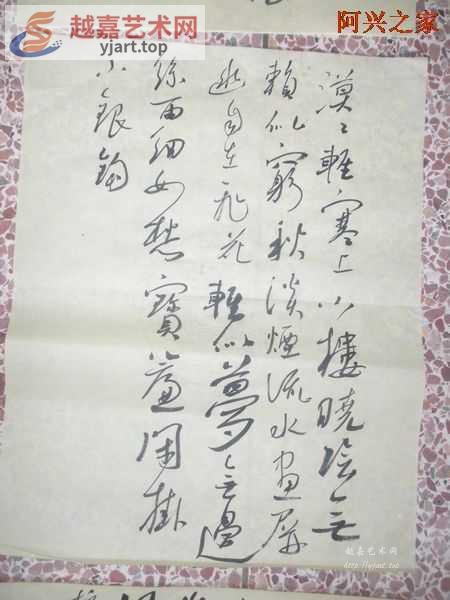 越嘉艺术网
yjart.top
阿兴之家
漠々輕寒上小樓曉陰无
賴似窮秋淡煙流水画屏
幽自在飛花輕似夢无邊
絲雨細如愁寶簾閑掛
小銀鈎
越嘉艺术网
http://yjart.top